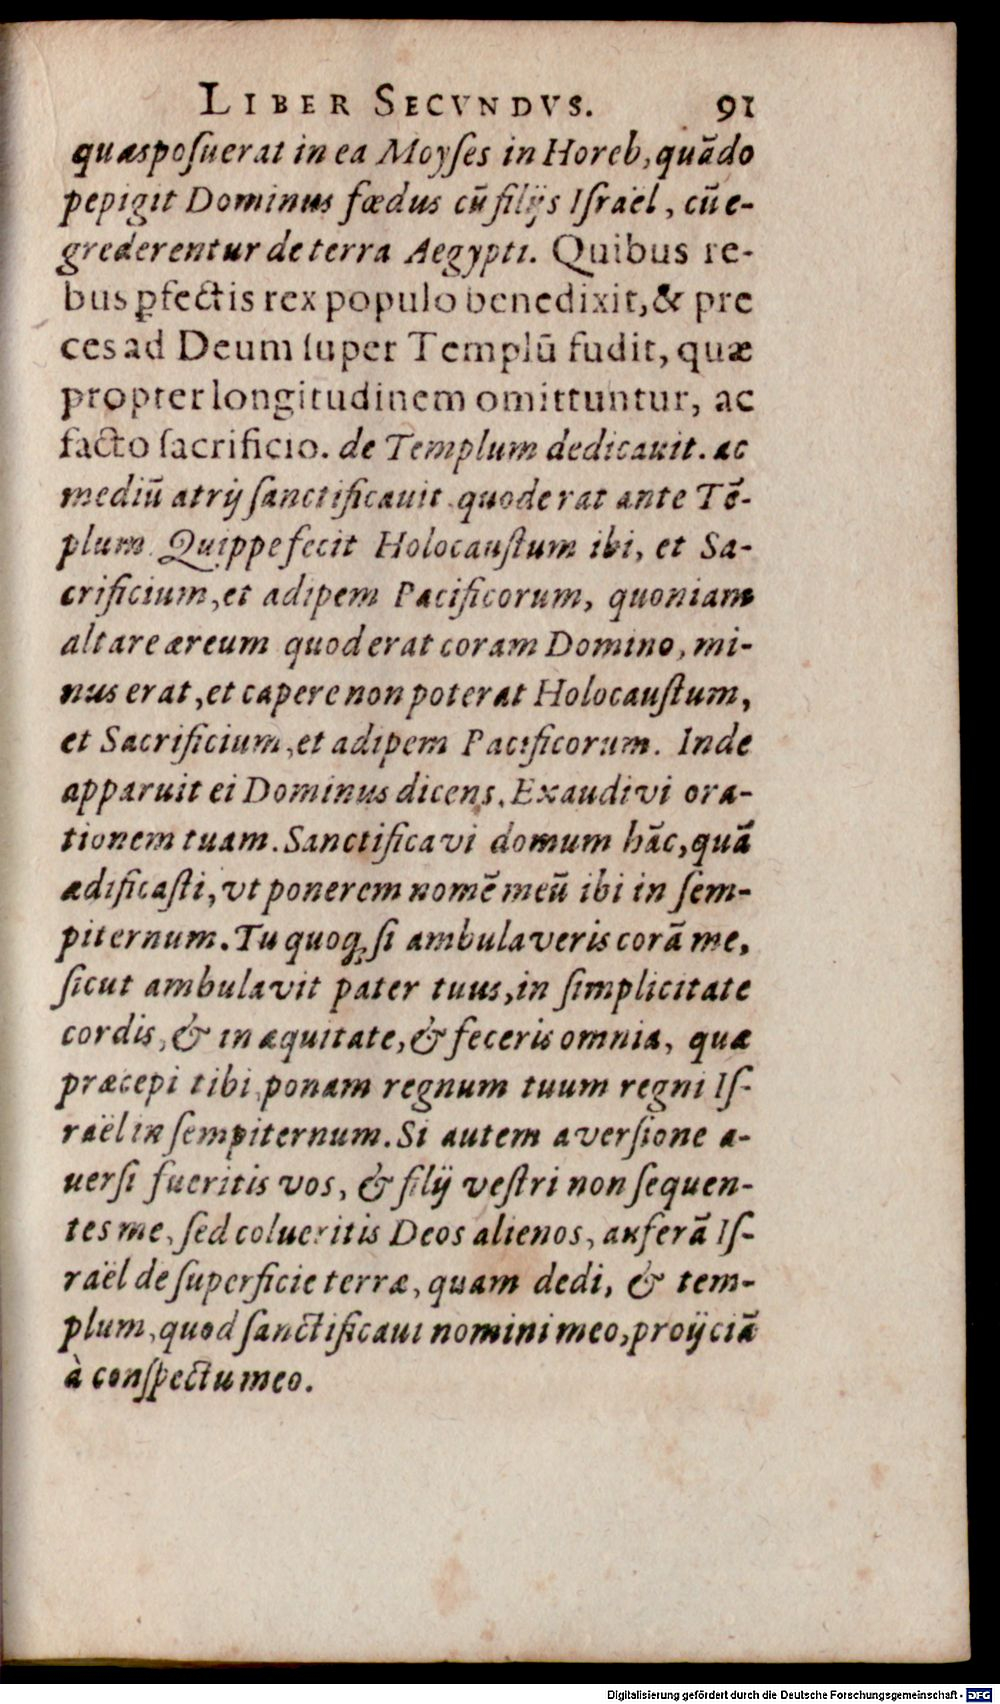 LIBER SECVNDVS. 91
quas posuerat in ea Moyses in Horeb, quãdo
pepigit Dominus fœdus cũ filijs Israël, cũ e-
grederentur de terra Aegypti. Quibus re-
bus ꝑfectis rex populo benedixit, & pre
ces ad Deum super Templũ fudit, quæ
propter longitudinem omittuntur, ac
facto sacrificio. de Templum dedicauit. ac
mediũ atrij sanctificauit quod erat ante Tẽ-
plum. Quippe fecit Holocaustum ibi, et Sa-
crificium, et adipem Pacificorum, quoniam
altare æreum quod erat coram Domino, mi-
nus erat, et capere non poterat Holocaustum,
et Sacrificium, et adipem Pacificorum. Inde
apparuit ei Dominus dicens. Exaudivi ora-
tionem tuam. Sanctificavi domum hãc, quã
ædificasti, vt ponerem nomẽ meũ ibi in sem-
piternum. Tu quoq; si ambulaveris corã me,
sicut ambulavit pater tuus, in simplicitate
cordis, & in æquitate, & feceris omnia, quæ
præcepi tibi, ponam regnum tuum regni Is-
raël in sempiternum. Si autem aversione a-
uersi fueritis vos, & filij vestri non sequen-
tes me, sed colueritis Deos alienos, auferã Is-
raël de superficie terræ, quam dedi, & tem-
plum, quod sanctificaui nomini meo, proijciã
à conspectu meo.
Digitalisierung gefördert durch die Deutsche Forschungsgemeinschaft - DFG